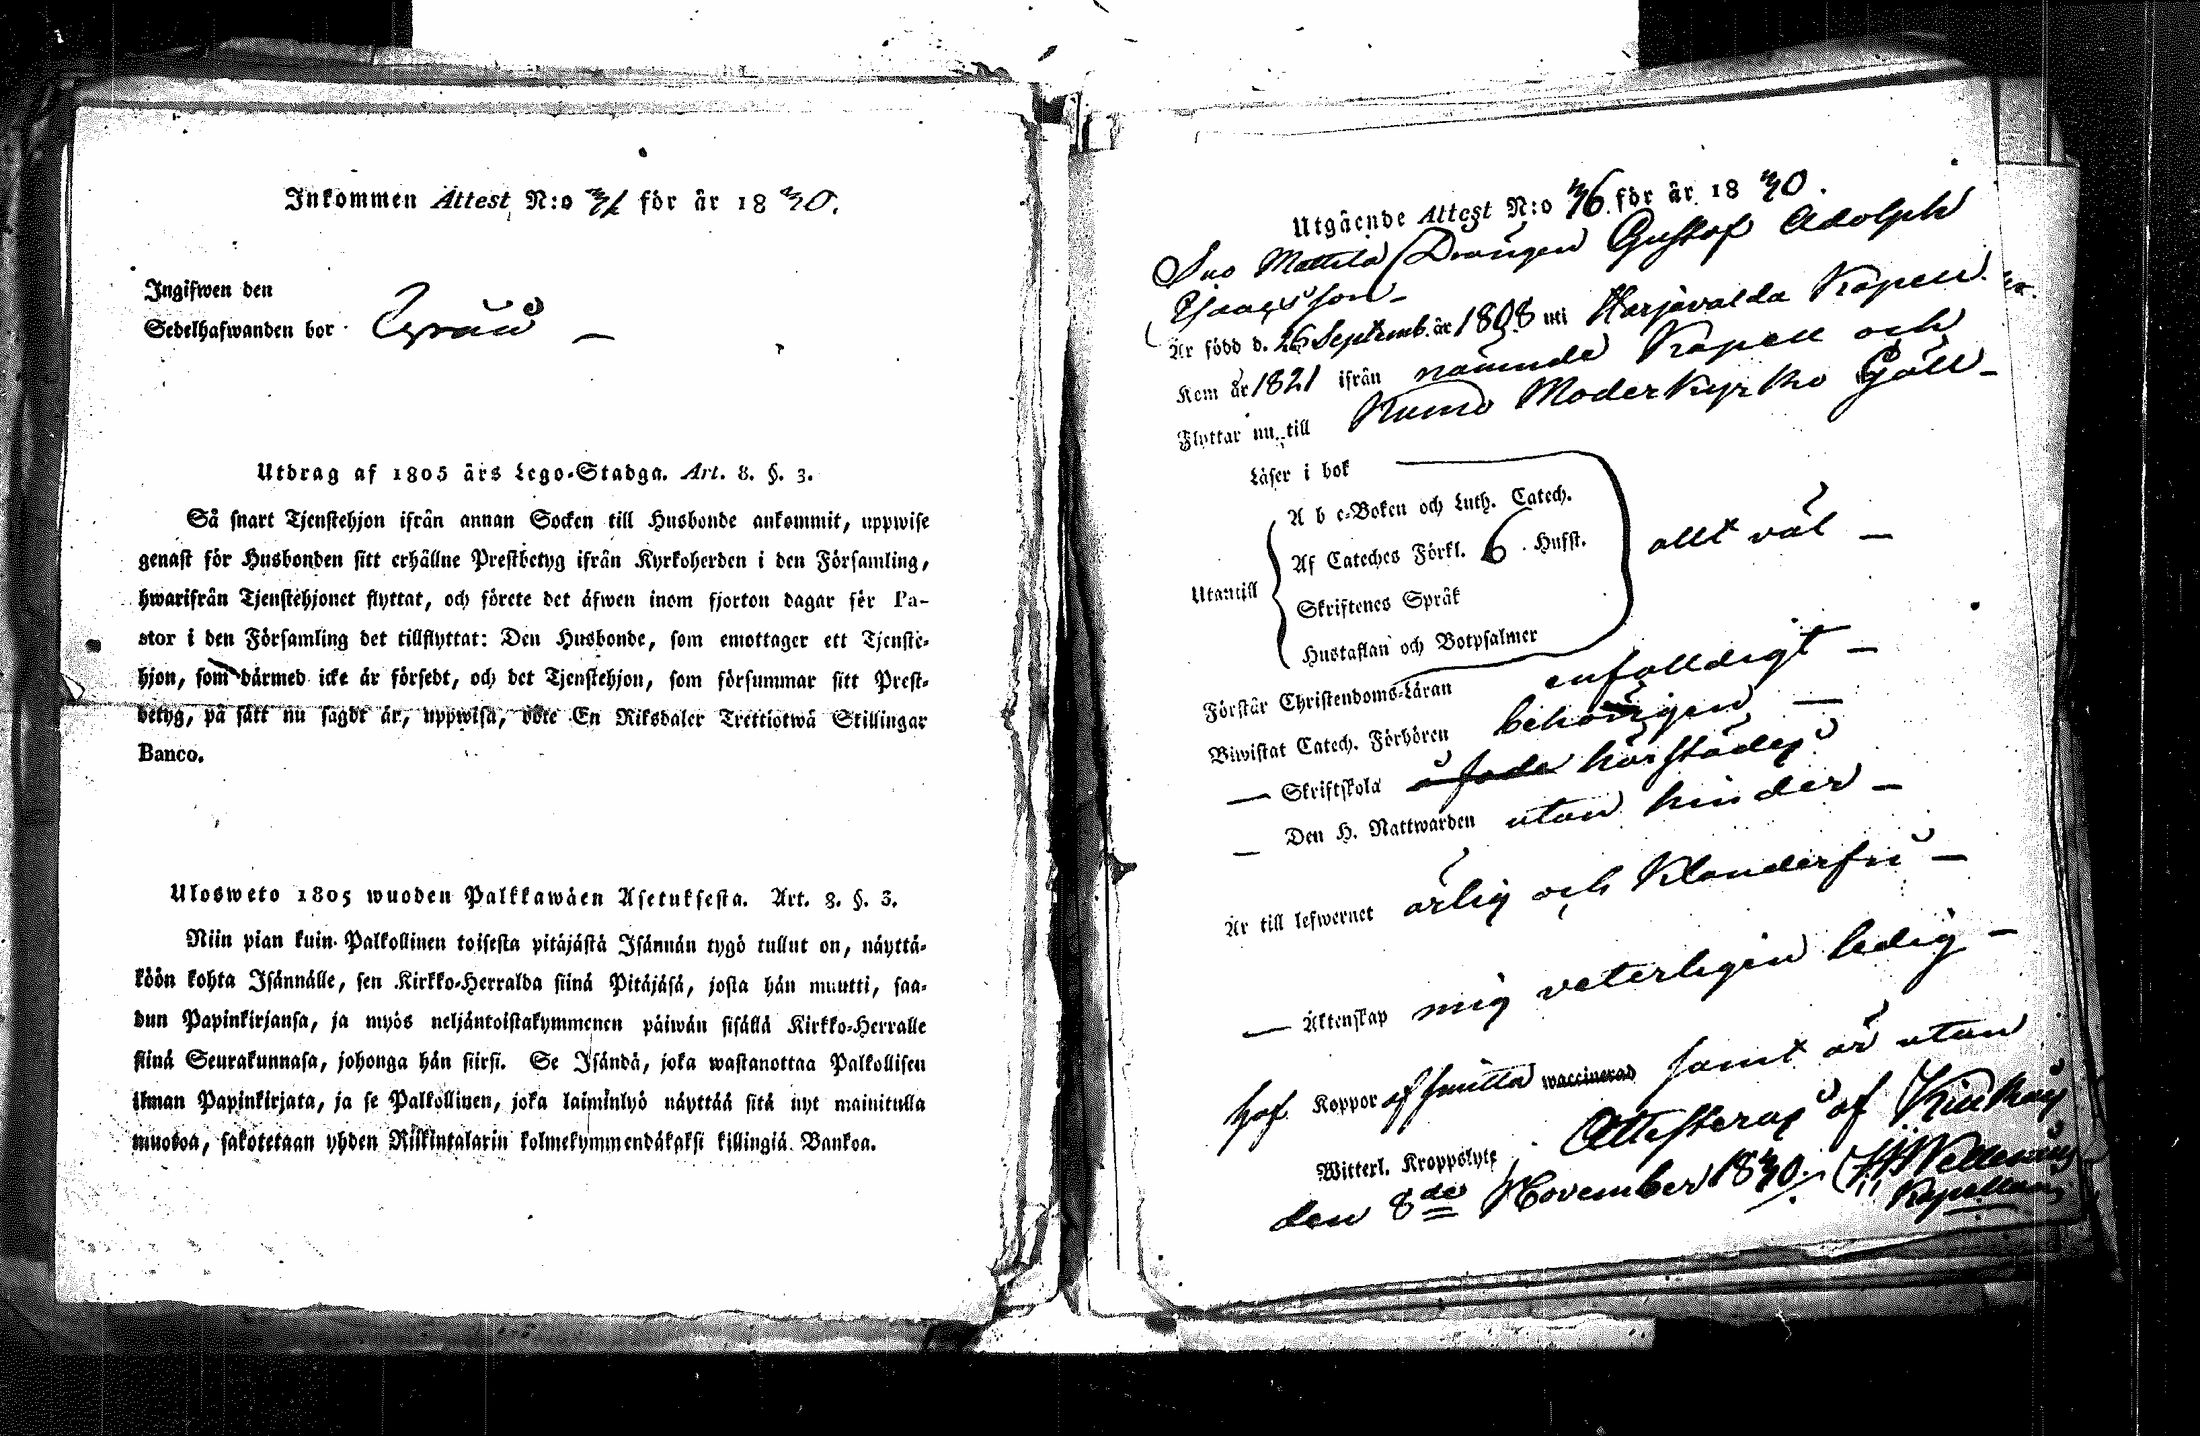 Inkommen Attest N:o för år 1830.
Ingifwen den
Sedelhafwanden bor
Utdrag af 1805 års Lego-Stadga. Art. 8. §. 3.
Så snart Tjenstehjon ifrån annan Socken till Husbonde ankommit, uppwise
genast för Husbonden sitt erhållne Prestbetyg ifrån Kyrkoherden i den Församling,
hwarifrån Tjenstehjonet flyttat, och förete det äfwen inom fjorton dagar för Pa-
stor i den Församling det tillflyttat: Den Husbonde, som emottager ett Tjenste-
hjon, som därmed icke är försedt, och det Tjenstehjon, som försummar sitt Prest-
betyg, på sätt nu sagdt är, uppwisa, böte En Riksdaler Trettiotwå Skillingar
Banco.
Ulosweto 1805 wuoden Palkkawäen Asetuksesta. Art. 8. §. 3.
Niin pian kuin Palkollinen toisesta pitäjästä Isännän tygö tullut on, näyttä-
köön kohta Isännälle, sen Kirkko-Herralda siinä Pitäjäsä, josta hän muutti, saa-
dun Papinkirjansa, ja myös neljäntoistakymmenen päiwän sisällä Kirkko-Herralle
siinä Seurakunnasa, johonga hän siirsi. Se Isändä, joka wastanottaa Palkollisen
ilman Papinkirjata, ja se Palkollinen, joka laiminlyö näyttää sitä nyt mainitulla
muodoa, sakotetaan yhden Riikintalarin kolmekymmendäkaksi killingiä Bankoa.
Utgående Attest N:o 36. för år 1830.
Suo Mattila Drängen Gustof Adolph
Isaacsson
Är född d. 26 Septemb. år 1808 uti Harjavalda Kapell.
Kom år 1821 ifrån nämnde Kapell och
Flyttar nu till Kumo Moderkyrko Gäll
Läser i bok
A b c-Boken och Luth. Catech.
Af Cateches Förkl. 6 Hufst. allt väl
Utantill
Skriftenes Språk
Hustaflan och Botpsalmer
Förstår Christendoms-Läran enfalldigt
Biwistat Catech. Förhören behörigen
Skriftskola härstädes
Den H. Nattwarden utan hinder
Är till lefwernet ärlig och klanderfri
Äktenskap mig veterligen ledig
haf. Koppor af smitta waccinerad samt är utan
Witterl. Kroppslyte. Attesteras af
den 8de November 1830.
Kapellan